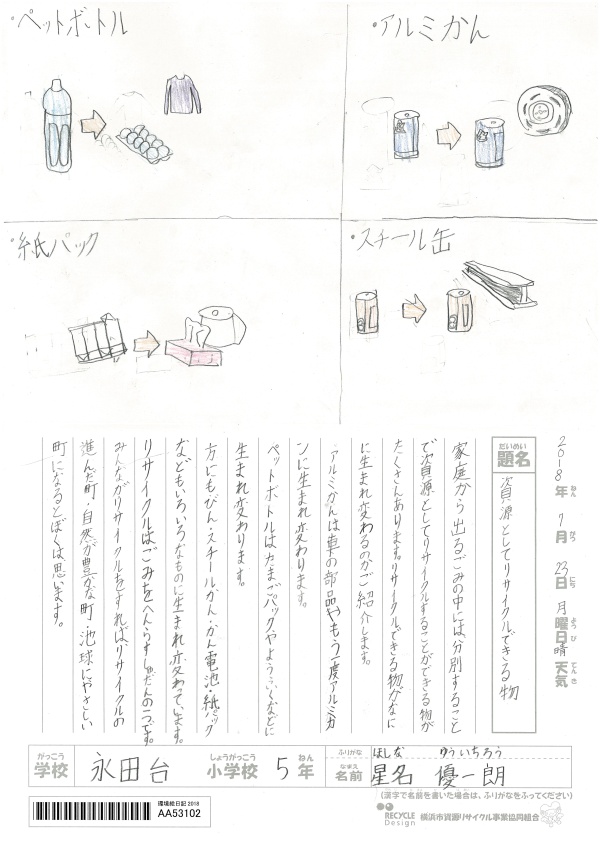 ・ペットボトル
・アルミかん
・紙パック
・スチール缶
2018年 7月 23日 月曜日 晴 天気
ねん がつ にち ようび てんき
だいめい
題名
資源としてリサイクルできる物
家庭から出るごみの中には、分別すること
で資源としてリサイクルすることができる物が
たくさんあります。リサイクルできる物がなに
に生まれ変わるのかご紹介します。
アルミかんは車の部品やもう一度アルミカ
ンに生まれ変わります。
ペットボトルはたまごパックやようふくなどに
生まれ変わります。
方にもびん・スチールかん・かん電池・紙パック
などもいろいろなものに生まれ変わっています。
リサイクルはごみをへらすしゅだんの一つです。
みんながリサイクルをすればリサイクルの
進んだ町・自然が豊かな町・地球にやさしい
町になるとぼくは思います。
がっこう しょうがっこう ねん
学校 永田台 小学校 5年
ふりがな ほしな ゆういちろう
なまえ
名前 星名 優一朗
(漢字で名前を書いた場合は、ふりがなをふってください)
環境絵日記2018
AA53102
RECYCLE Design
横浜市資源リサイクル事業協同組合